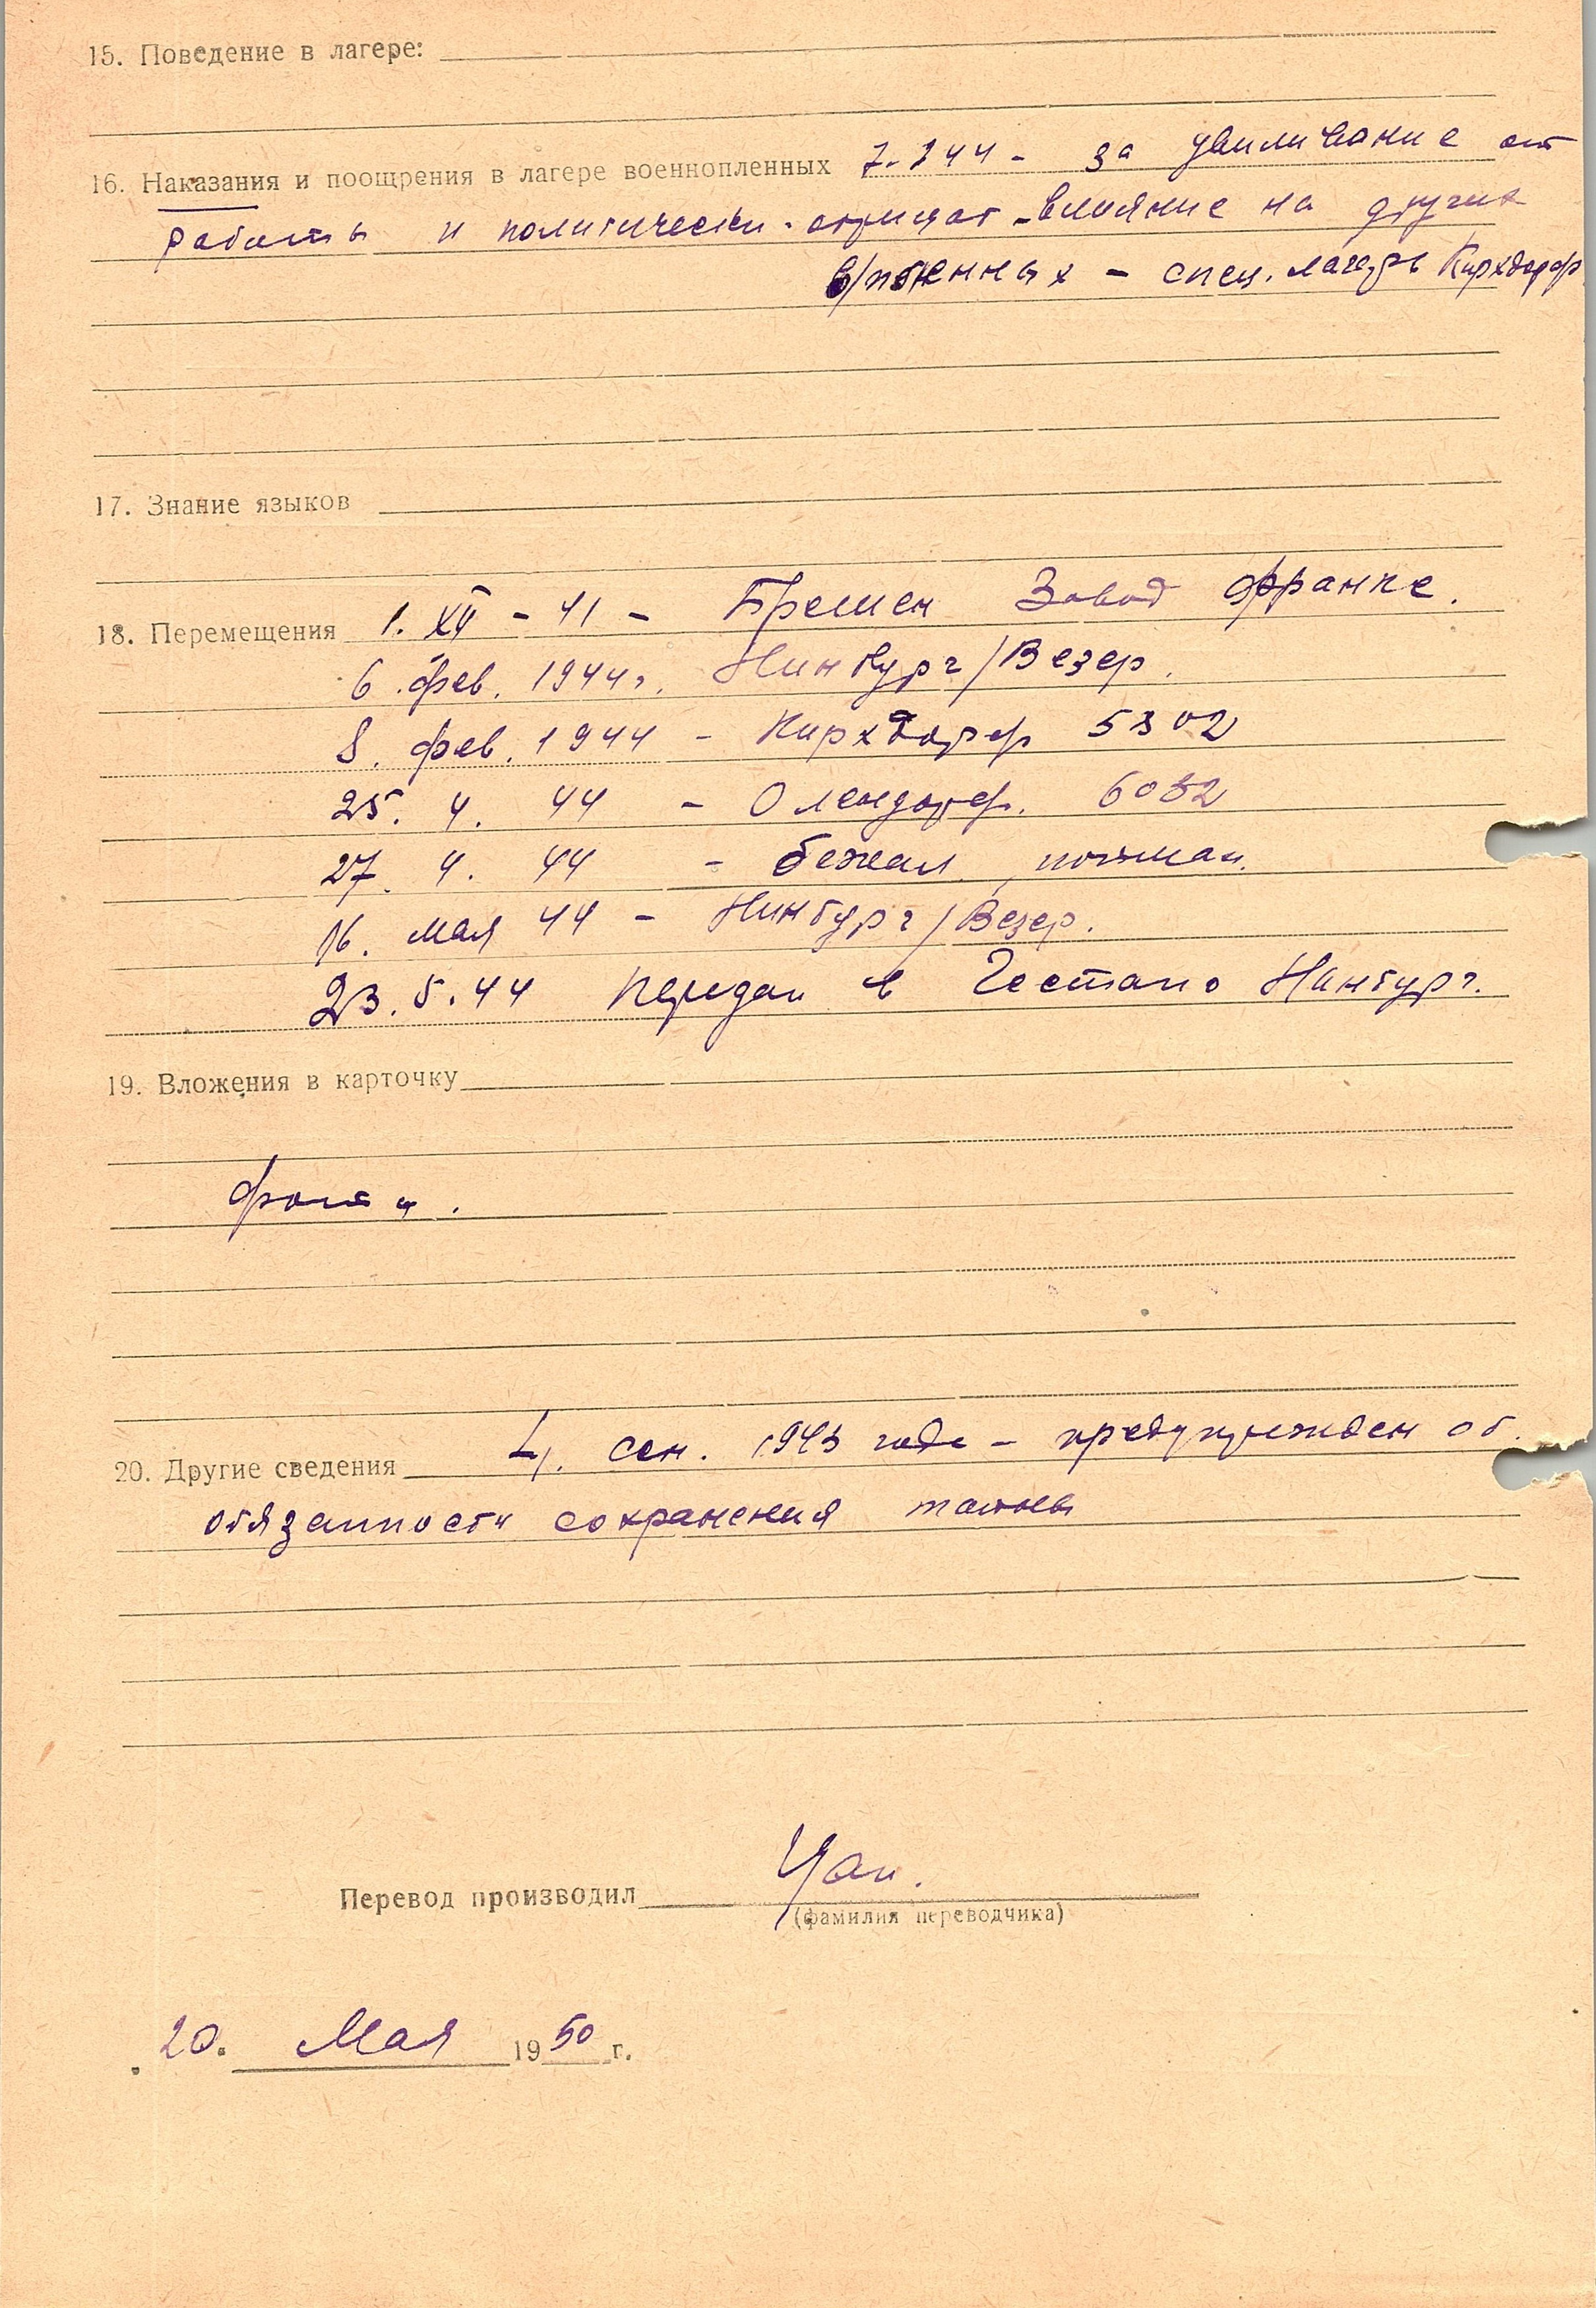 15. Поведение в лагере:
16. Наказания и поощрения в лагере военнопленных 7.2 44 - за увиливание от
работы и политически-отрицат-влияние на других
в/пленных - спец. лагерь Кирхдорф
17. Знание языков
18. Перемещения 1. XII - 41 - Бремен Завод Франке.
6. фев. 1944г. Нинбург/Везер.
8. фев. 1944 - Кирхдорф 5302
25. 4. 44 - Олендорф. 6052
27. 4. 44 - бежал, пойман.
16. мая 44 - Нинбург/Везер.
23. 5. 44 передан в Гестапо Нинбург.
19. Вложения в карточку
20. Другие сведения 4. сен. 1943 года - предупрежден об.
обязанности сохранения тайны
Перевод производил
(фамилия переводчика)
20. Мая 1950 г.